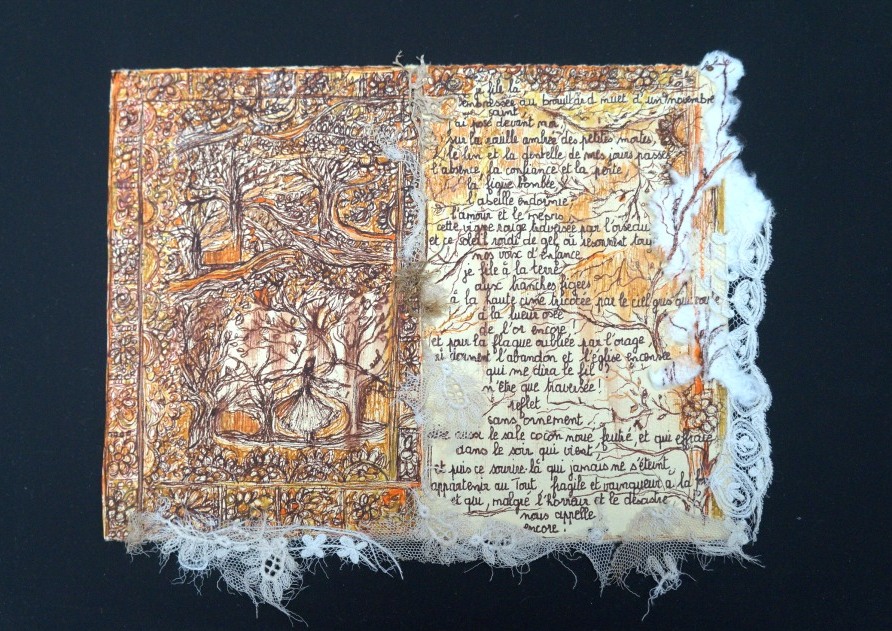 je file là
embrassée au brouillard muet d'un novembre
saint
j'ai posé devant moi
sur la rouille ambrée des petites mortes,
le lin et la dentelle de mes jours passés
l'absence, la confiance et la perte
la figue tombée
l'abeille endormie
l'amour et le mépris,
cette vigne rouge traversée par l'oiseau
et ce soleil roidi de gel, où résonnent tou
nos voix d'enfance
je file à la terre
aux branches figées
à la haute cime tricotée par le ciel gris qui
à la lueur osée
de l'or encore,
et pour la flaque oubliée par l'orage
dorment l'abandon et l'église enfouie
qui me dira le fil
n'être que traversée!
reflet
sans ornement
aussi le sale cocon noué, feutré, et qui effraie
dans le soir qui vient,
et puis ce sourire-là qui jamais ne s'éteint,
appartenir au Tout, fragile et vainqueur à la
et qui, malgré l'Horreur et le désastre
nous appelle
encore!